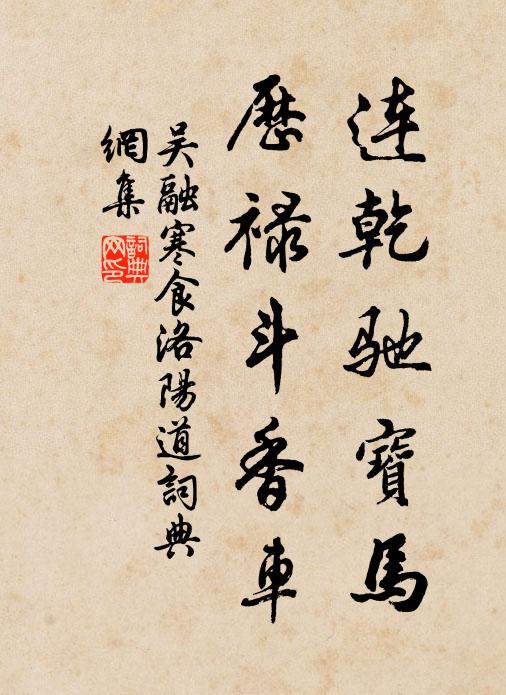 連乾馳寶馬
歷禄斗香車
吳融寒食洛陽道詞典
網集
詞典
网印